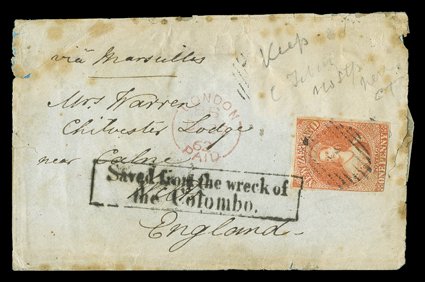 via Marseilles
Keep
LONDON
PAID
Mrs Warren
Chilvester Lodge
near Calne
Saved from the wreck of
the Colombo.
England